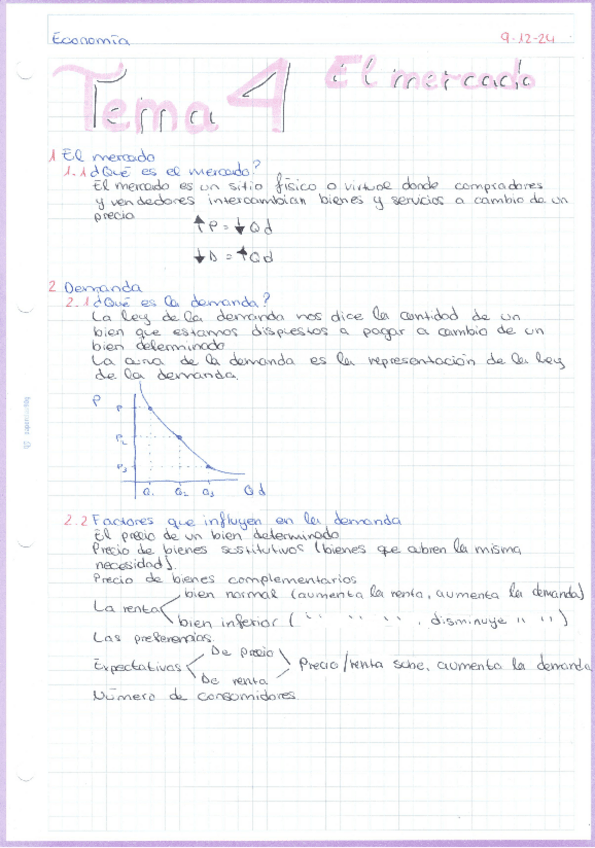 Economía
9-12-24
Tema 4
El mercado
1 El mercado
1.1 ¿Qué es el mercado?
El mercado es un sitio físico o virtual donde compradores
y vendedores intercambian bienes y servicios a cambio de un
precio
↑P = ↓Qd
↓D = ↑Qd
2 Demanda
2.1 ¿Qué es la demanda?
La ley de la demanda nos dice la cantidad de un
bien que estamos dispuestos a pagar a cambio de un
bien determinado
La curva de la demanda es la representación de la ley
de la demanda.
P
P1
P2
P3
Q1 Q2 Q3 Qd
2.2 Factores que influyen en la demanda
El precio de un bien determinado
Precio de bienes sustitutivos (bienes que cubren la misma
necesidad).
Precio de bienes complementarios
bien normal (aumenta la renta, aumenta la demanda)
La renta
bien inferior ( " " " ", disminuye " ")
Las preferencias.
De precio
Expectativas
Precio/renta sube, aumenta la demanda
De renta
Número de consumidores